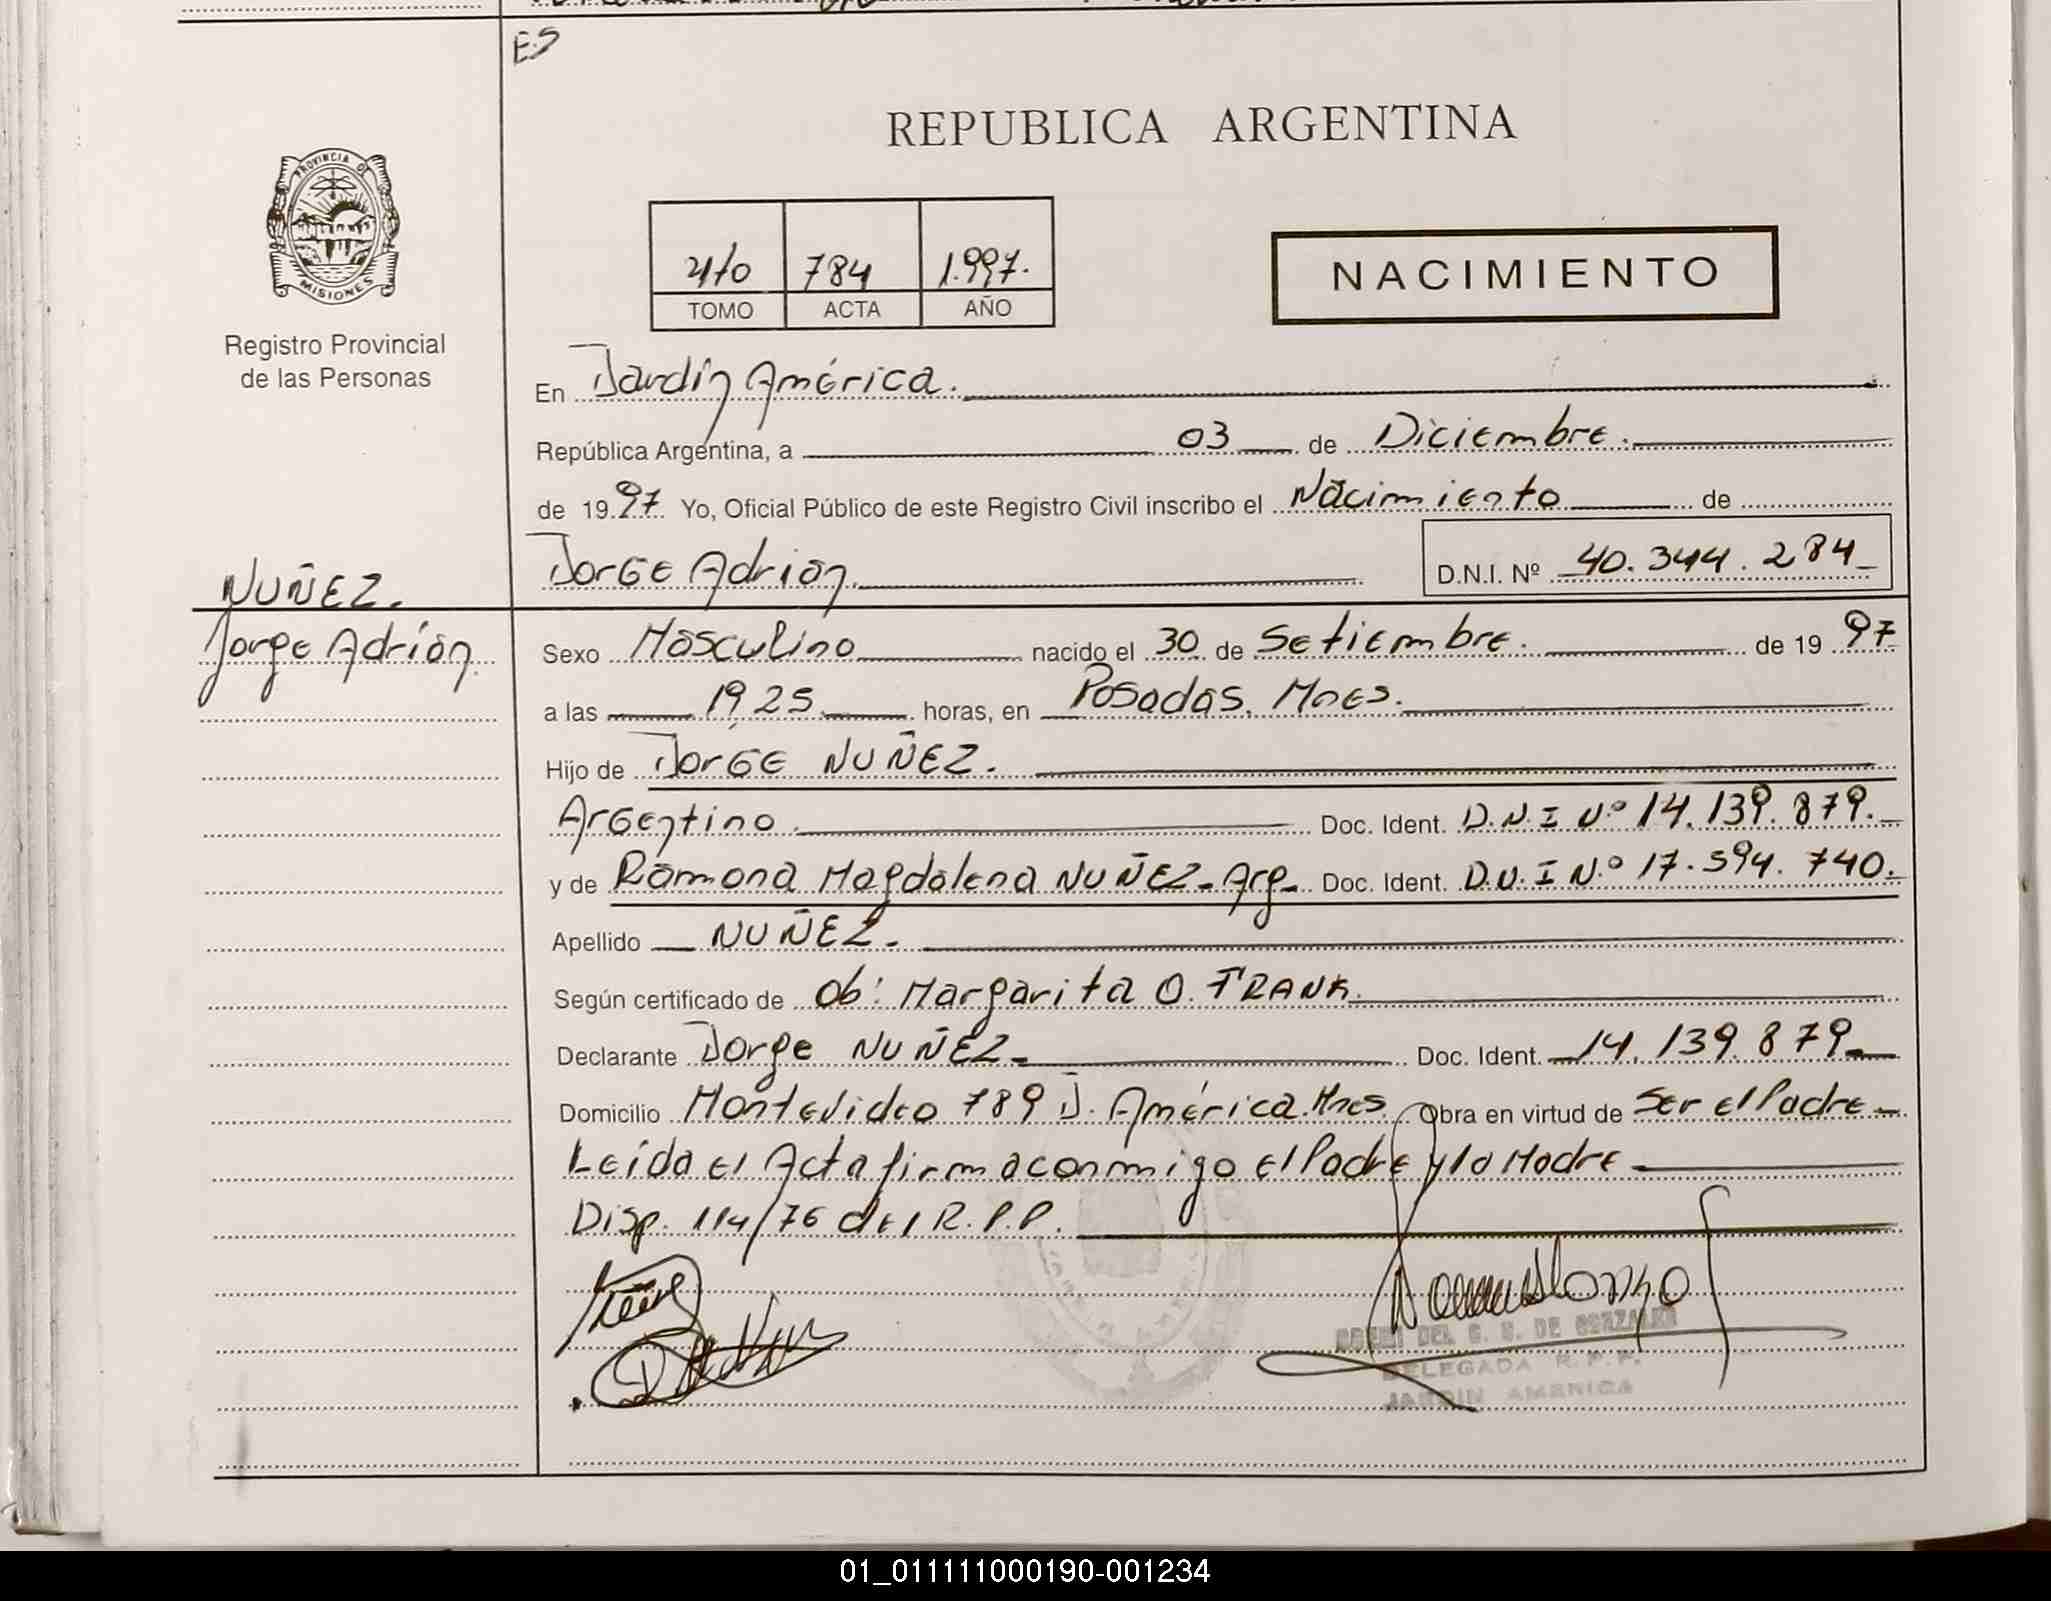 ES
REPUBLICA ARGENTINA
PROVINCIA DE
MISIONES
Registro Provincial
de las Personas
4to 784 1.997.
TOMO ACTA AÑO
NACIMIENTO
En Jardín América.
República Argentina, a 03 de Diciembre.
de 1997. Yo, Oficial Público de este Registro Civil inscribo el Nacimiento de
Jorge Adrián. D.N.I. Nº 40.344.284
NUÑEZ.
Jorge Adrián.
Sexo Masculino nacido el 30 de Setiembre. de 1997
a las 19,25 horas, en Posadas, Mnes.
Hijo de Jorge NUÑEZ.
Argentino. Doc. Ident. D.N.I Nº 14.139.879.
y de Ramona Magdalena NUÑEZ- Arg- Doc. Ident. D.N.I N.º 17.594.740.
Apellido NUÑEZ.
Según certificado de Ob: Margarita O. FRANK.
Declarante Jorge NUÑEZ- Doc. Ident. 14.139.879
Domicilio Montevideo 789 J. América. Mnes. Obra en virtud de Ser el Padre
Leída el Acta firma conmigo el Padre y la Madre
Disp. 114/76 del R.P.P.
DEL C. G. DE GONZALEZ
DELEGADA R.P.P.
JARDIN AMERICA
01_011111000190-001234